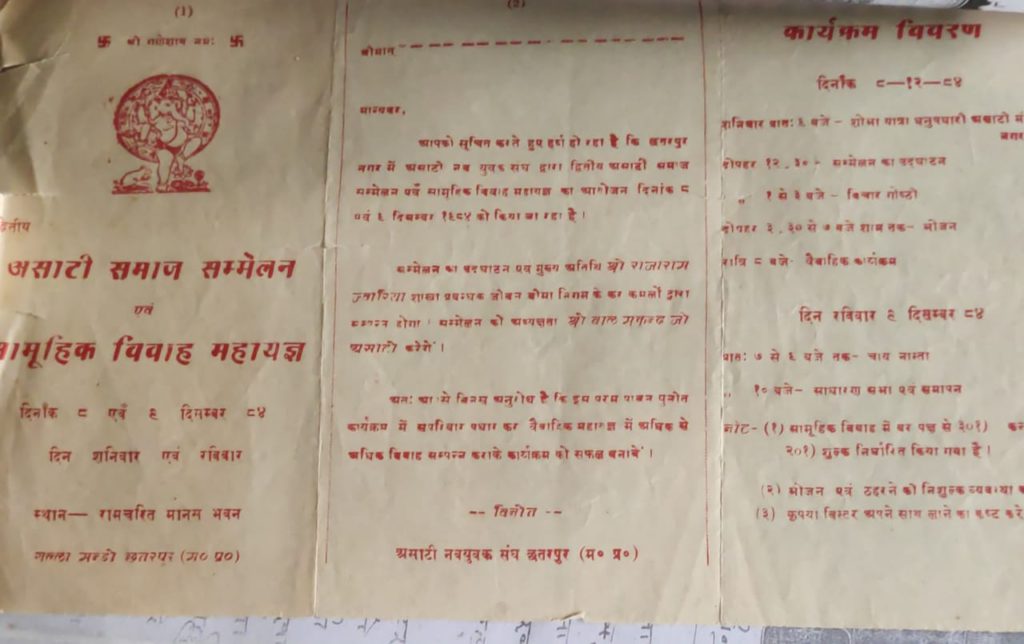 (1)
卐 श्री गणेशाय नमः 卐
द्वितीय
असाटी समाज सम्मेलन
एवं
सामूहिक विवाह महायज्ञ
दिनाँक ८ एवँ ९ दिसम्बर ८४
दिन शनिवार एवं रविवार
स्थान— रामचरित मानस भवन
गल्ला मन्डी छतरपुर (म० प्र०)
(2)
श्रीमान्
मान्यवर,
आपको सूचित करते हुए हर्ष हो रहा है कि छतरपुर
नगर में असाटी नव युवक संघ द्वारा द्वितीय असाटी समाज
सम्मेलन एवँ सामूहिक विवाह महायज्ञ का आयोजन दिनांक ८
एवं ९ दिसम्बर १९८४ को किया जा रहा है ।
सम्मेलन का उदघाटन एवं मुख्य अतिथि श्री राजाराम
शाखा प्रबन्धक जीवन बीमा निगम के कर कमलों द्वारा
सम्पन्न होगा । सम्मेलन की अध्यक्षता श्री बाल मुकुन्द जी
असाटी करेंगे ।
अतः आपसे विनम्र अनुरोध है कि इस परम पावन पुनीत
कार्यक्रम में सपरिवार पधार कर वैवाहिक महायज्ञ में अधिक से
अधिक विवाह सम्पन्न कराके कार्यक्रम को सफल बनावें ।
-- विनीत --
असाटी नवयुवक संघ छतरपुर (म० प्र०)
कार्यक्रम विवरण
दिनाँक ८—१२—८४
शनिवार प्रातः ९ बजे - शोभा यात्रा धनुषधारी असाटी
दोपहर १२.३० - सम्मेलन का उदघाटन
,, १ से ३ बजे - विचार गोष्ठी
दोपहर ३.३० से ७ बजे शाम तक - भोजन
रात्रि ८ बजे - वैवाहिक कार्यक्रम
दिन रविवार ९ दिसम्बर ८४
प्रातः ७ से ९ बजे तक - चाय नास्ता
,, १० बजे - साधारण सभा एवं समापन
नोट - (१) सामूहिक विवाह में वर पक्ष से ३०१)
२०१) शुल्क निर्धारित किया गया है ।
(२) भोजन एवं ठहरने की निशुल्क व्यवस्था
(३) कृपया बिस्तर अपने साथ लाने का कष्ट करें